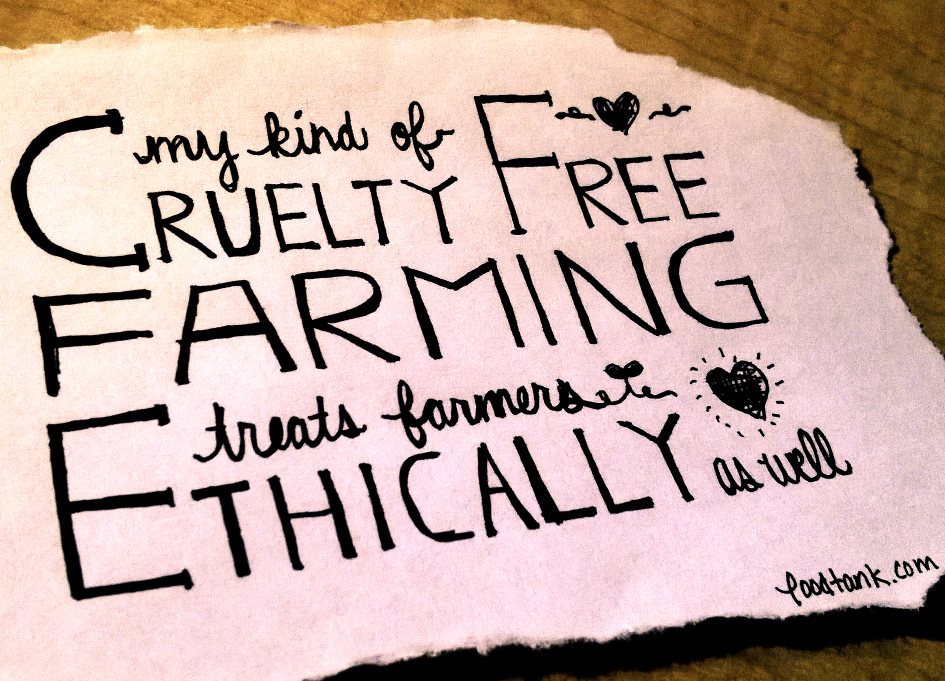 my kind of
CRUELTY FREE
FARMING
treats farmers
ETHICALLY as well
foodtank.com